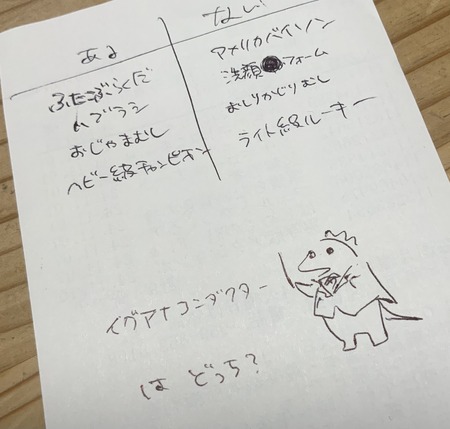 ある
ふたこぶらくだ
ハブラシ
おじゃまむし
ヘビー級チャンピオン
ない
アメリカバイソン
洗顔フォーム
おしりかじりむし
ライト級ルーキー
イグアナコンダクター
は どっち?